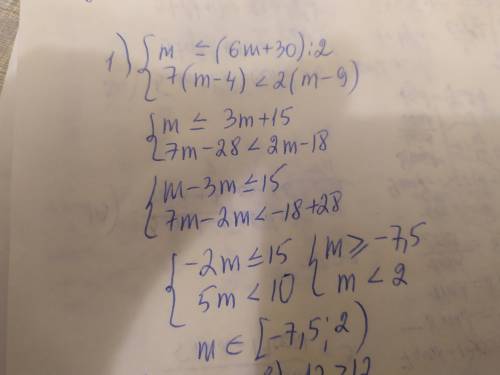 1) { m ≤ (6m+30):2
7(m-4) < 2(m-9)
{ m ≤ 3m+15
7m-28 < 2m-18
{ m-3m ≤ 15
7m-2m < -18+28
{ -2m ≤ 15 { m ≥ -7,5
5m < 10 m < 2
m ∈ [-7,5; 2)